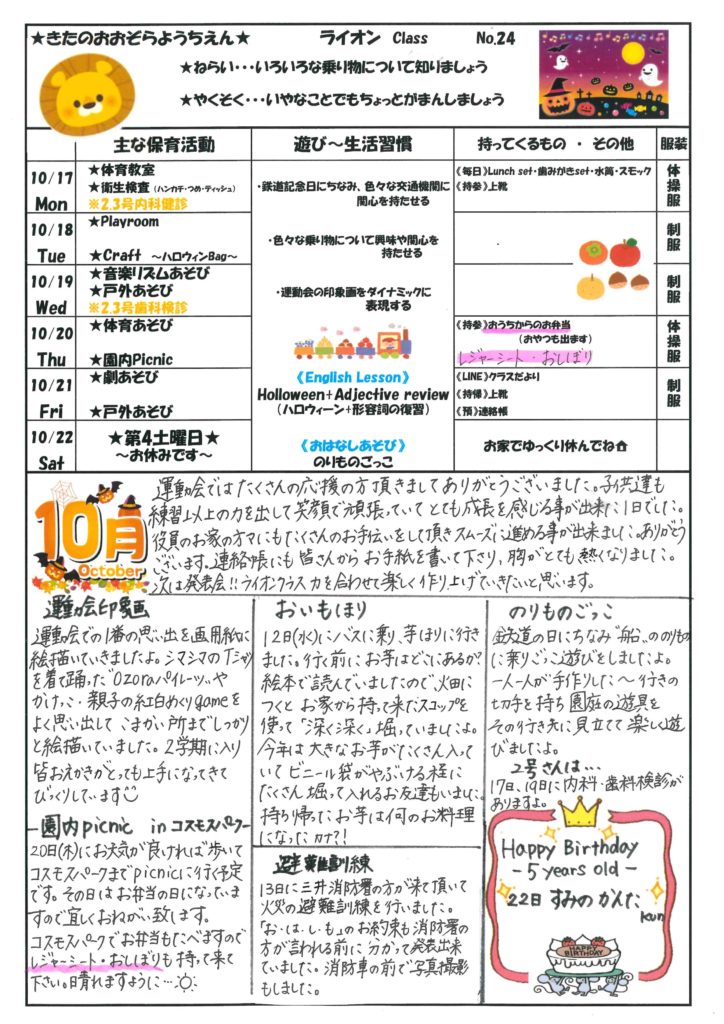 ★きたのおおぞらようちえん★　ライオン Class　No.24
★ねらい・・・いろいろな乗り物について知りましょう
★やくそく・・・いやなことでもちょっとがまんしましょう
主な保育活動　遊び～生活習慣　持ってくるもの ・ その他　服装
10/17 Mon
★体育教室
★衛生検査（ハンカチ・つめ・ティッシュ）
※2.3号内科健診
・鉄道記念日にちなみ、色々な交通機関に
関心を持たせる
《毎日》Lunch set・歯みがきset・水筒・スモック
《持参》上靴
体操服
10/18 Tue
★Playroom
★Craft ～ハロウィンBag～
・色々な乗り物について興味や関心を
持たせる
制服
10/19 Wed
★音楽リズムあそび
★戸外あそび
※2.3号歯科検診
・運動会の印象画をダイナミックに
表現する
制服
10/20 Thu
★体育あそび
★園内Picnic
《持参》おうちからのお弁当
（おやつも出ます）
レジャーシート・おしぼり
体操服
10/21 Fri
★劇あそび
★戸外あそび
《English Lesson》
Holloween+Adjective review
（ハロウィーン+形容詞の復習）
《LINE》クラスだより
《持帰》上靴
《預》連絡帳
制服
10/22 Sat
★第4土曜日★
～お休みです～
《おはなしあそび》
のりものごっこ
お家でゆっくり休んでね
10月
October
運動会ではたくさんの応援の方頂きましてありがとうございました。子供達も
練習以上の力を出して笑顔で頑張っていてとても成長を感じる事が出来た1日でした。
役員のお家の方々にもたくさんのお手伝いをして頂きスムーズに進める事が出来ました。ありがとう
ございます。連絡帳にも皆さんからお手紙を書いて下さり、胸がとても熱くなりました。
次は発表会!!ライオンクラス力を合わせて楽しく作り上げていきたいと思います。
運動会印象画
運動会での1番の思い出を画用紙に
絵描いていきましたよ。シマシマのTシャツ
を着て踊った"Ozoraパイレーツ"や
かけっこ・親子の紅白めくりgameを
よく思い出して こまかい所までしっかり
と絵描いていました。2学期に入り
皆おえかきがとっても上手になってきて
びっくりしています
園内picnic in コスモスパーク
20日(木)にお天気が良ければ歩いて
コスモスパークまでpicnicに行く予定
です。その日はお弁当の日になっていま
すので宜しくおねがい致します。
コスモスパークでお弁当もたべますので
レジャーシート・おしぼりも持って来て
下さい。晴れますように…
おいもほり
12日(水)にバスに乗り、芋ほりに行き
ました。行く前にお芋はどこにあるか
絵本で読んでいましたので、火田に
つくと お家から持って来たスコップを
使って「深く深く」堀っていましたよ。
今年は大きなお芋がたくさん入って
いてビニール袋がやぶける程に
たくさん堀って入れるお友達もいました。
持ち帰ったお芋は何のお料理
になったカナ?!
避難訓練
13日に三井消防署の方が来て頂いて
火災の避難訓練を行いました。
「お・は・し・も」のお約束も消防署の
方が言われる前に分かって発表出来
ていました。消防車の前で写真撮影
もしました。
のりものごっこ
鉄道の日にちなみ"船"ののりもの
に乗りごっこ遊びをしましたよ。
一人一人が手作りした～行きの
切手を持ち園庭の遊具を
その行き先に見立てて楽しく遊
びましたよ。
2号さんは…
17日、19日に内科・歯科検診が
ありますよ。
Happy Birthday
-5 years old-
22日 すみの かんた kun
HAPPY BIRTHDAY